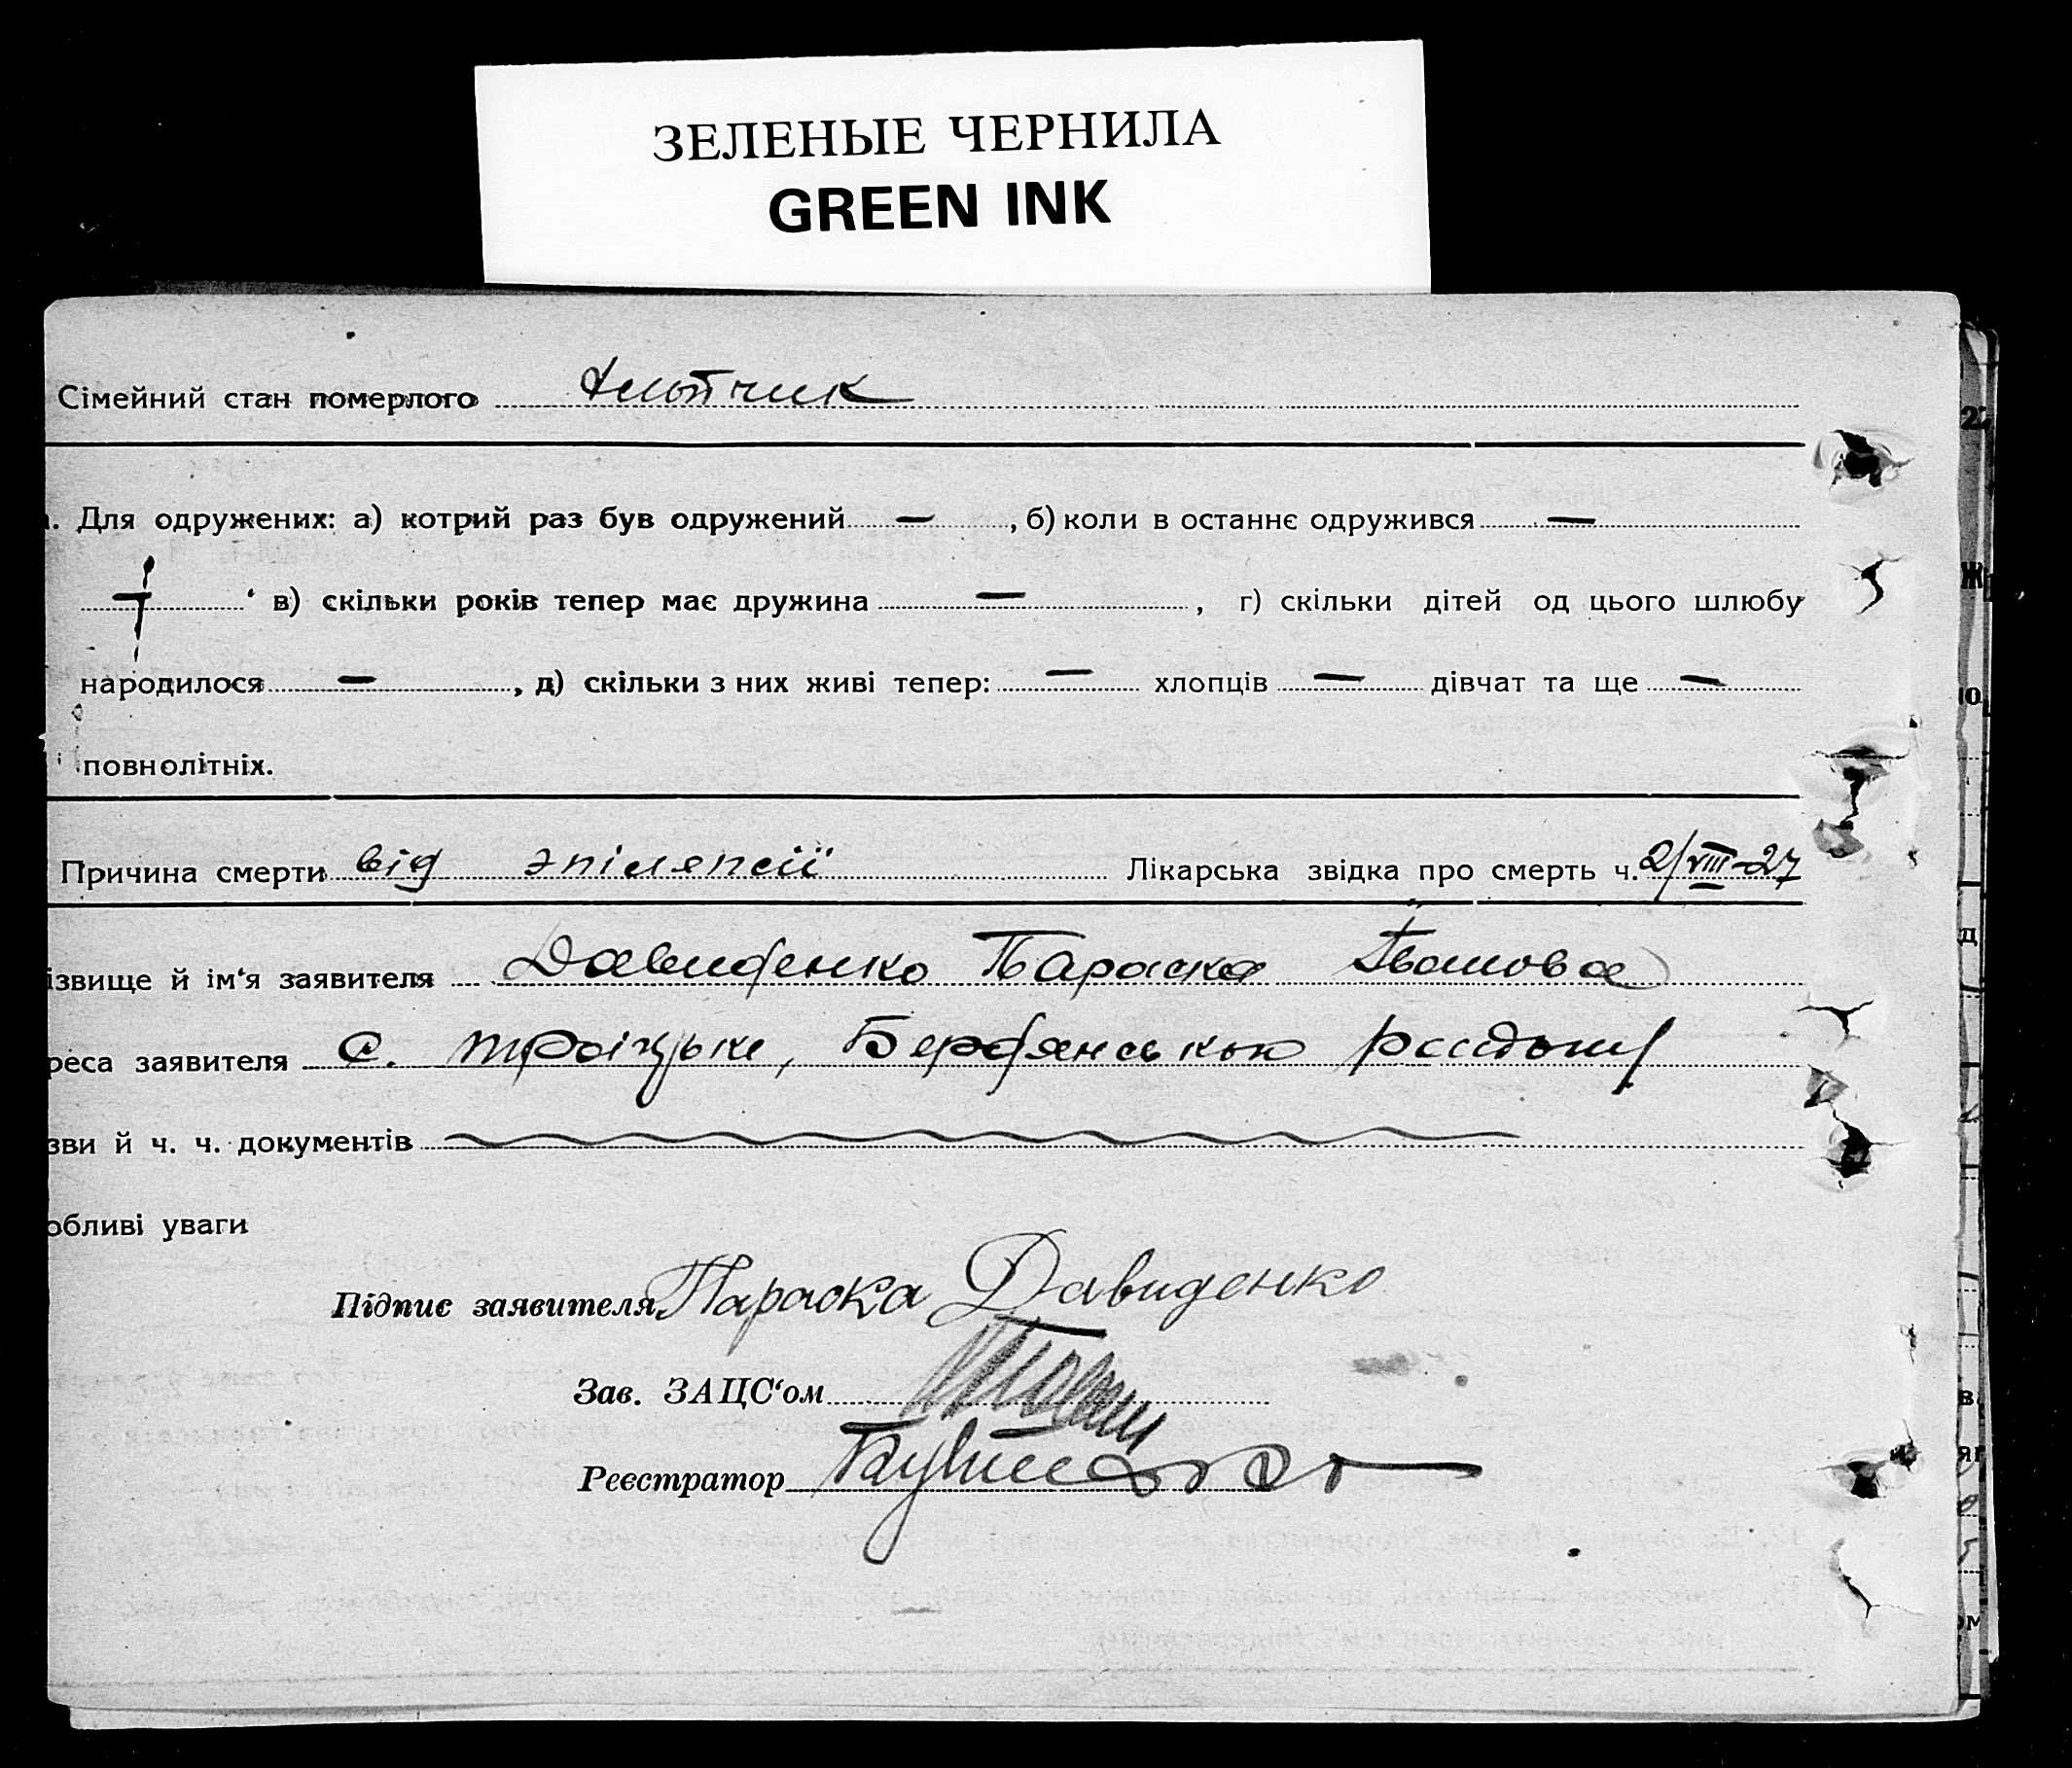 ЗЕЛЕНЫЕ ЧЕРНИЛА
GREEN INK
Сімейний стан померлого хлопчик
Для одружених: а) котрий раз був одружений — , б) коли в останнє одружився —
— в) скільки років тепер має дружина — , г) скільки дітей од цього шлюбу
народилося — , д) скільки з них живі тепер: — хлопців — дівчат та ще —
повнолітніх.
Причина смерти від эпіляпсії Лікарська звідка про смерть ч. 2/VIII-27
ізвище й ім'я заявителя Давиденко Параска Івановa
реса заявителя с. Троіцьке, Бердянського району
зви й ч. ч. документів
обливі уваги
Підпис заявителя Параска Давиденко
Зав. ЗАЦС'ом
Реєстратор